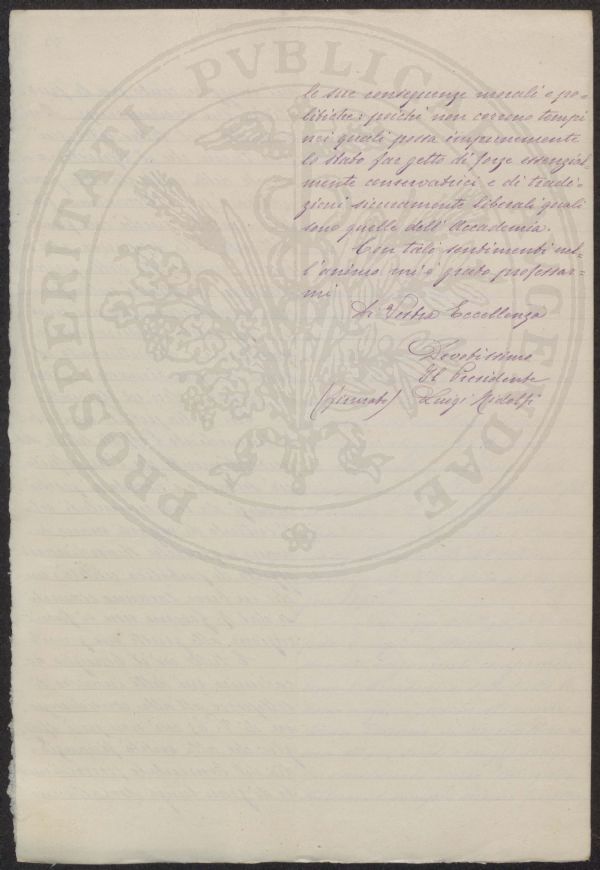 PROSPERITATI PVBLICAE AVGENDAE
le sue conseguenze morali e po-
litiche: poichè non corrono tempi
nei quali possa impunemente
lo Stato far getto di forze essenzial-
mente conservatrici e di tradi-
zioni sicuramente liberali quali
sono quelle dell'Accademia.
Con tali sentimenti nel-
l'animo mi è grato professar-
mi
Di Vostra Eccellenza
Devotissimo
Il Presidente
(firmato) Luigi Ridolfi